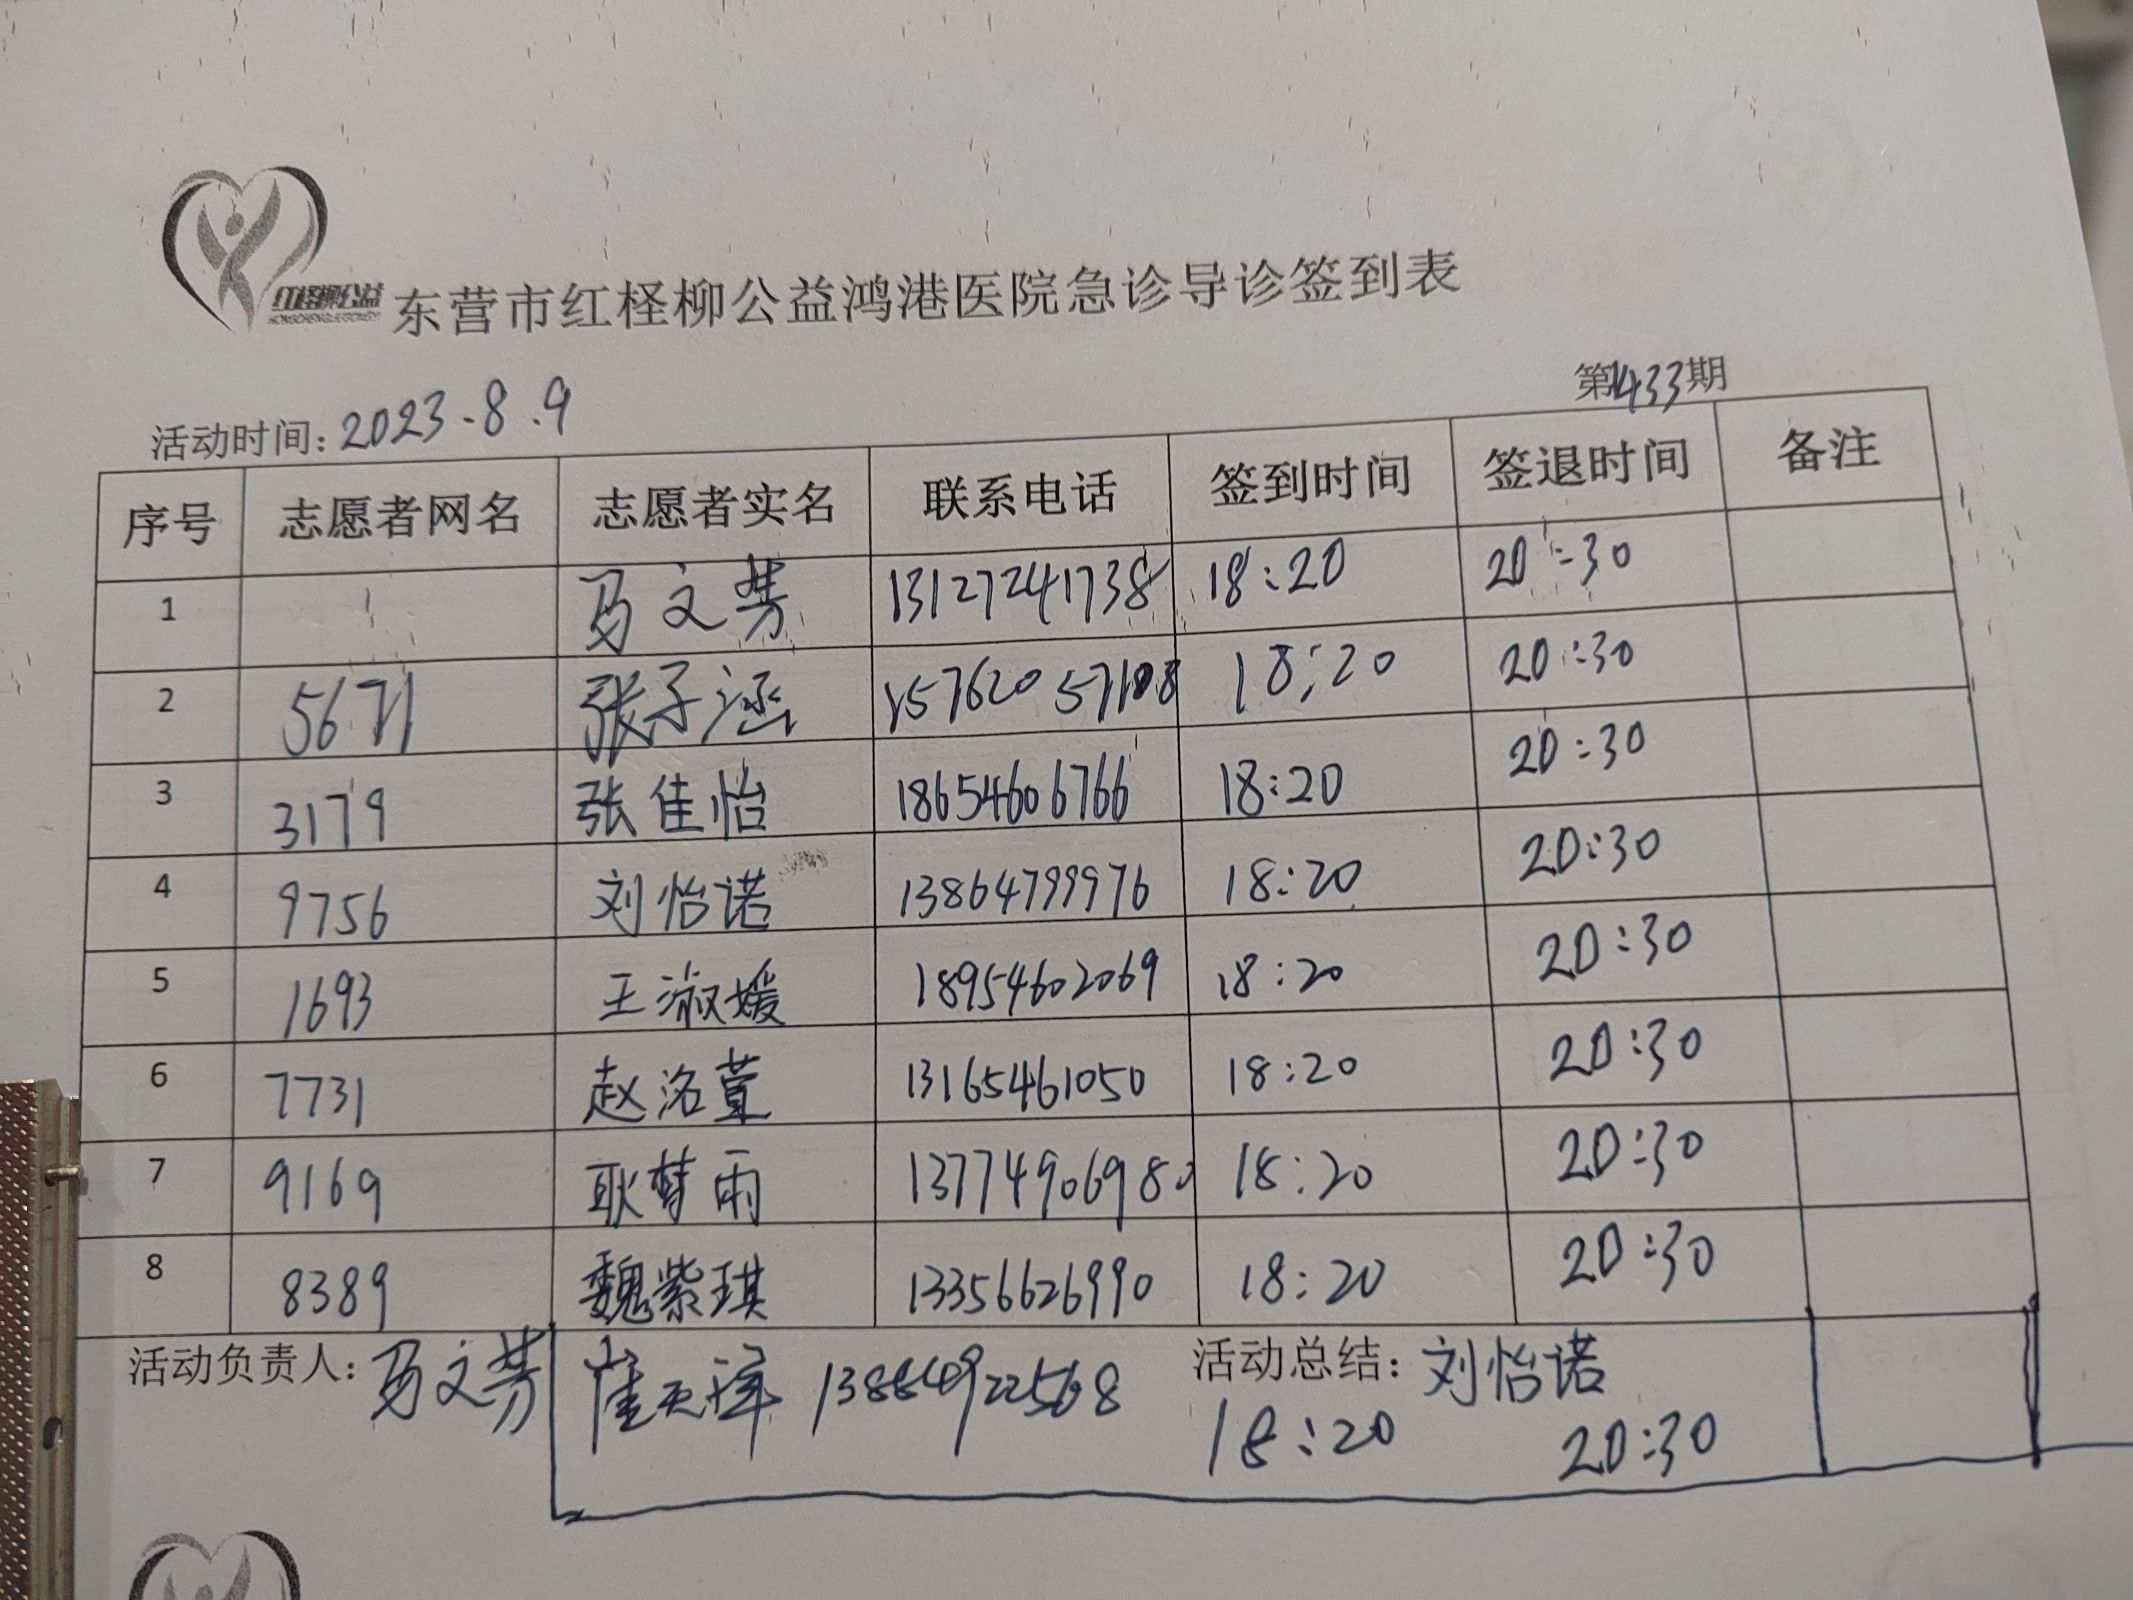 红柽柳公益
东营市红柽柳公益鸿港医院急诊导诊签到表
第1433期
活动时间：2023.8.9
序号 志愿者网名 志愿者实名 联系电话 签到时间 签退时间 备注
1 马文芳 13127241738 18:20 20:30
2 5671 张子涵 18:20 20:30
3 3179 张佳怡 18654606766 18:20 20:30
4 9756 刘怡诺 13864799976 18:20 20:30
5 1693 王淑媛 18954602069 18:20 20:30
6 7731 赵洺萱 13165461050 18:20 20:30
7 9169 耿梦雨 13774906980 18:20 20:30
8 8389 魏紫琪 13356626990 18:20 20:30
活动负责人：马文芳 活动总结：刘怡诺
18:20 20:30